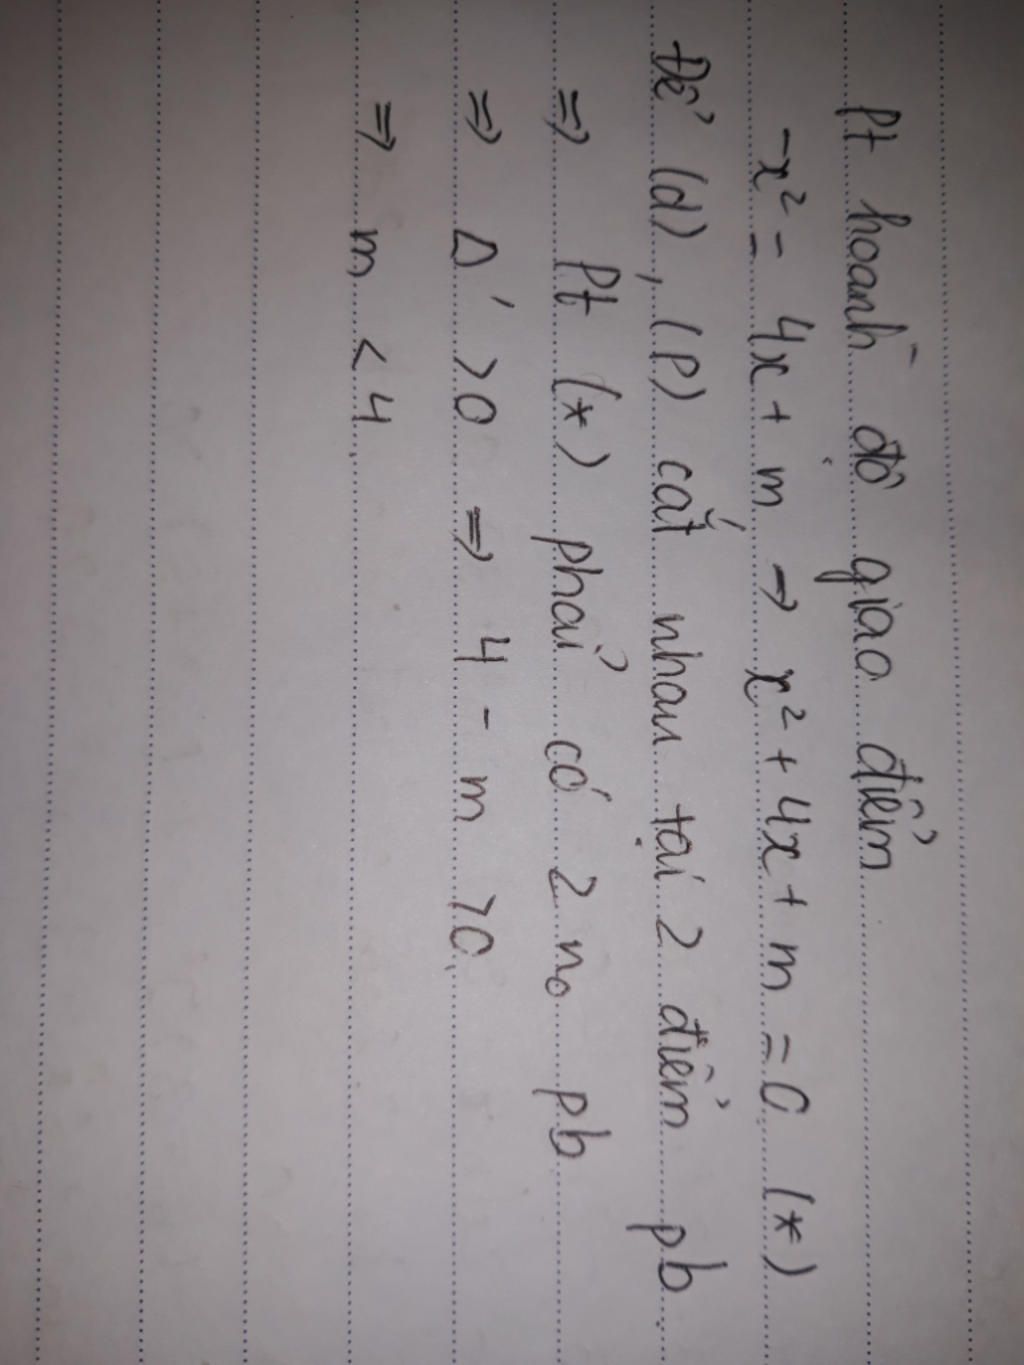 Pt hoành độ giao điểm
-x² = 4x + m → x² + 4x + m = 0 (*)
Để (d), (P) cắt nhau tại 2 điểm pb
⇒ Pt (*) phải có 2 no pb
⇒ Δ' > 0 ⇒ 4 - m > 0
⇒ m < 4